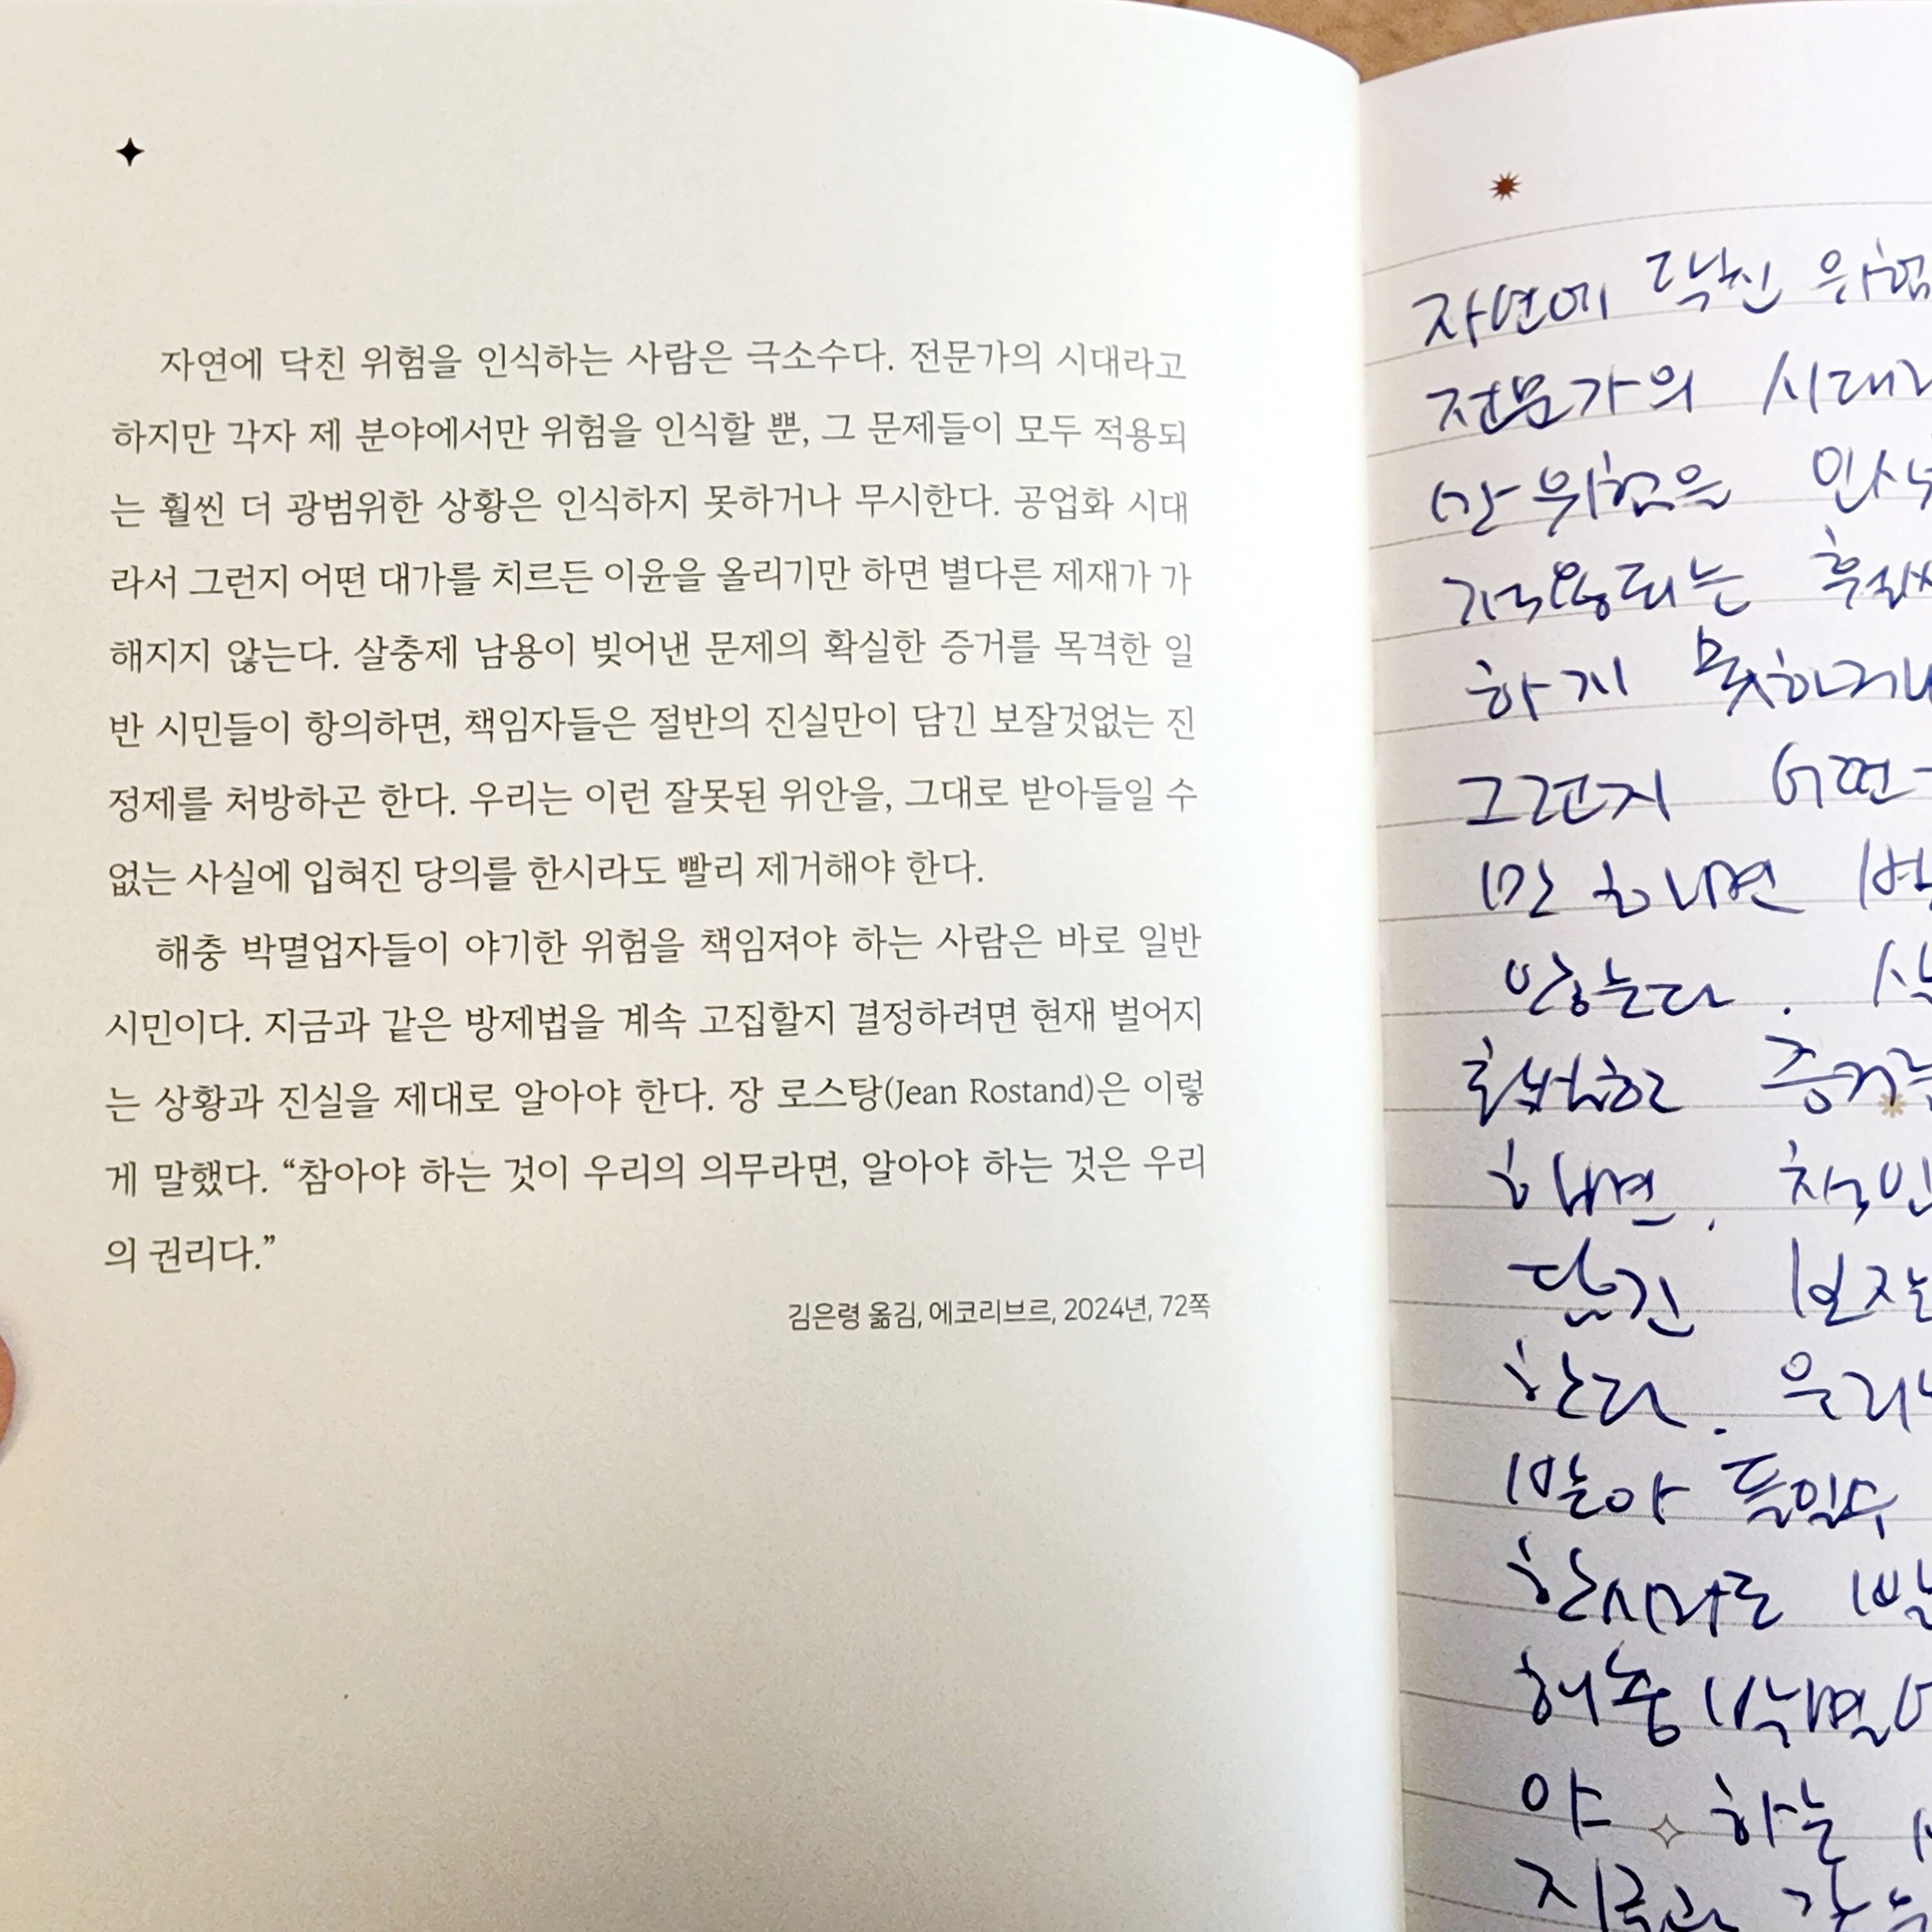 자연에 닥친 위험을 인식하는 사람은 극소수다. 전문가의 시대라고
하지만 각자 제 분야에서만 위험을 인식할 뿐, 그 문제들이 모두 적용되
는 훨씬 더 광범위한 상황은 인식하지 못하거나 무시한다. 공업화 시대
라서 그런지 어떤 대가를 치르든 이윤을 올리기만 하면 별다른 제재가 가
해지지 않는다. 살충제 남용이 빚어낸 문제의 확실한 증거를 목격한 일
반 시민들이 항의하면, 책임자들은 절반의 진실만이 담긴 보잘것없는 진
정제를 처방하곤 한다. 우리는 이런 잘못된 위안을, 그대로 받아들일 수
없는 사실에 입혀진 당의를 한시라도 빨리 제거해야 한다.
해충 박멸업자들이 야기한 위험을 책임져야 하는 사람은 바로 일반
시민이다. 지금과 같은 방제법을 계속 고집할지 결정하려면 현재 벌어지
는 상황과 진실을 제대로 알아야 한다. 장 로스탕(Jean Rostand)은 이렇
게 말했다. “참아야 하는 것이 우리의 의무라면, 알아야 하는 것은 우리
의 권리다.”
김은령 옮김, 에코리브르, 2024년, 72쪽
자연에 닥친 위험
전문가의 시대
만 위험을 인
적용되는 훨
하지 못하거나
그런지 어떤
만 하면 별
않는다.
증거
하면. 책임
담긴 보잘
한다. 우리
받아 들일수
한시라도
해충 박멸
야 하는
지금과 같